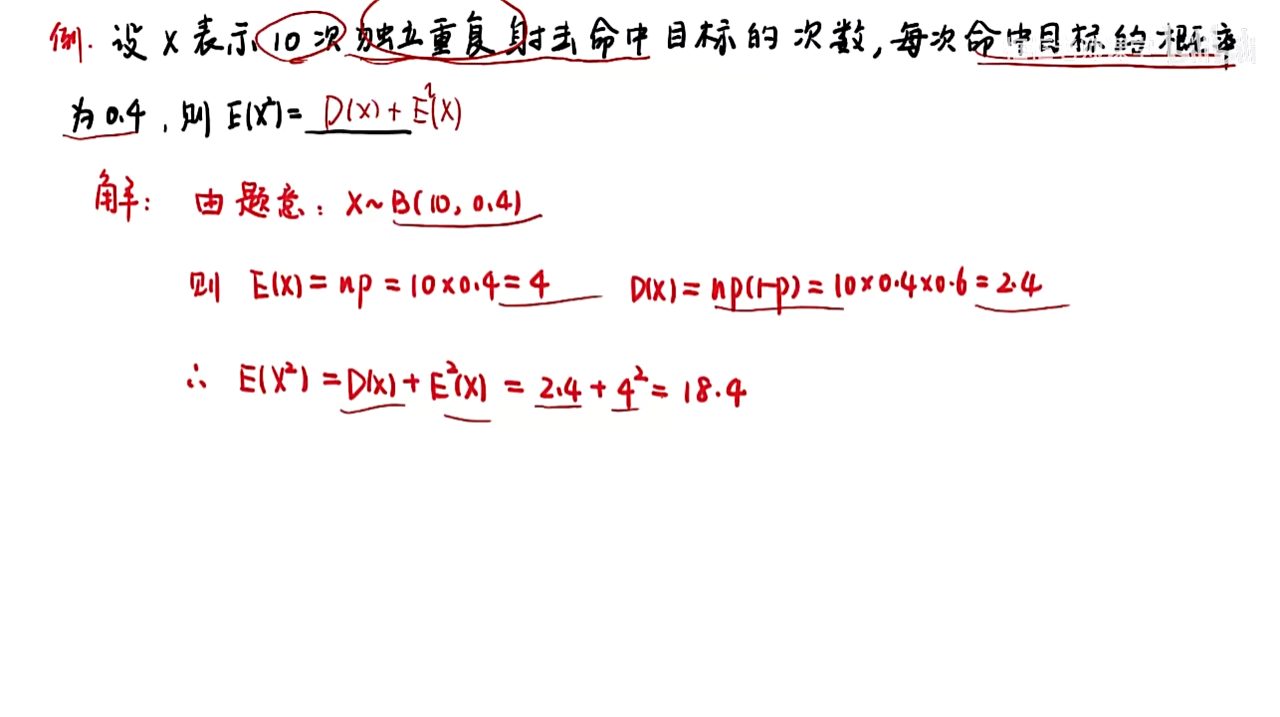 例. 设 X 表示 10 次 独立重复射击命中目标的次数, 每次命中目标的概率
为 0.4 , 则 E(X²) = D(X) + E²(X)
解: 由题意: X ~ B(10, 0.4)
则 E(X) = np = 10×0.4 = 4 D(X) = np(1-p) = 10×0.4×0.6 = 2.4
∴ E(X²) = D(X) + E²(X) = 2.4 + 4² = 18.4